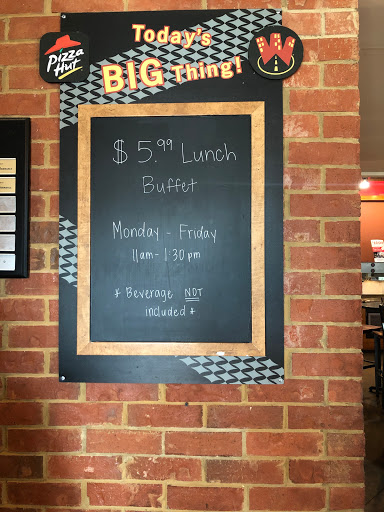 Today's
BIG Thing!
Pizza
Hut
W
$ 5.99 Lunch
Buffet
Monday - Friday
11am - 1:30 pm
* Beverage NOT
included *